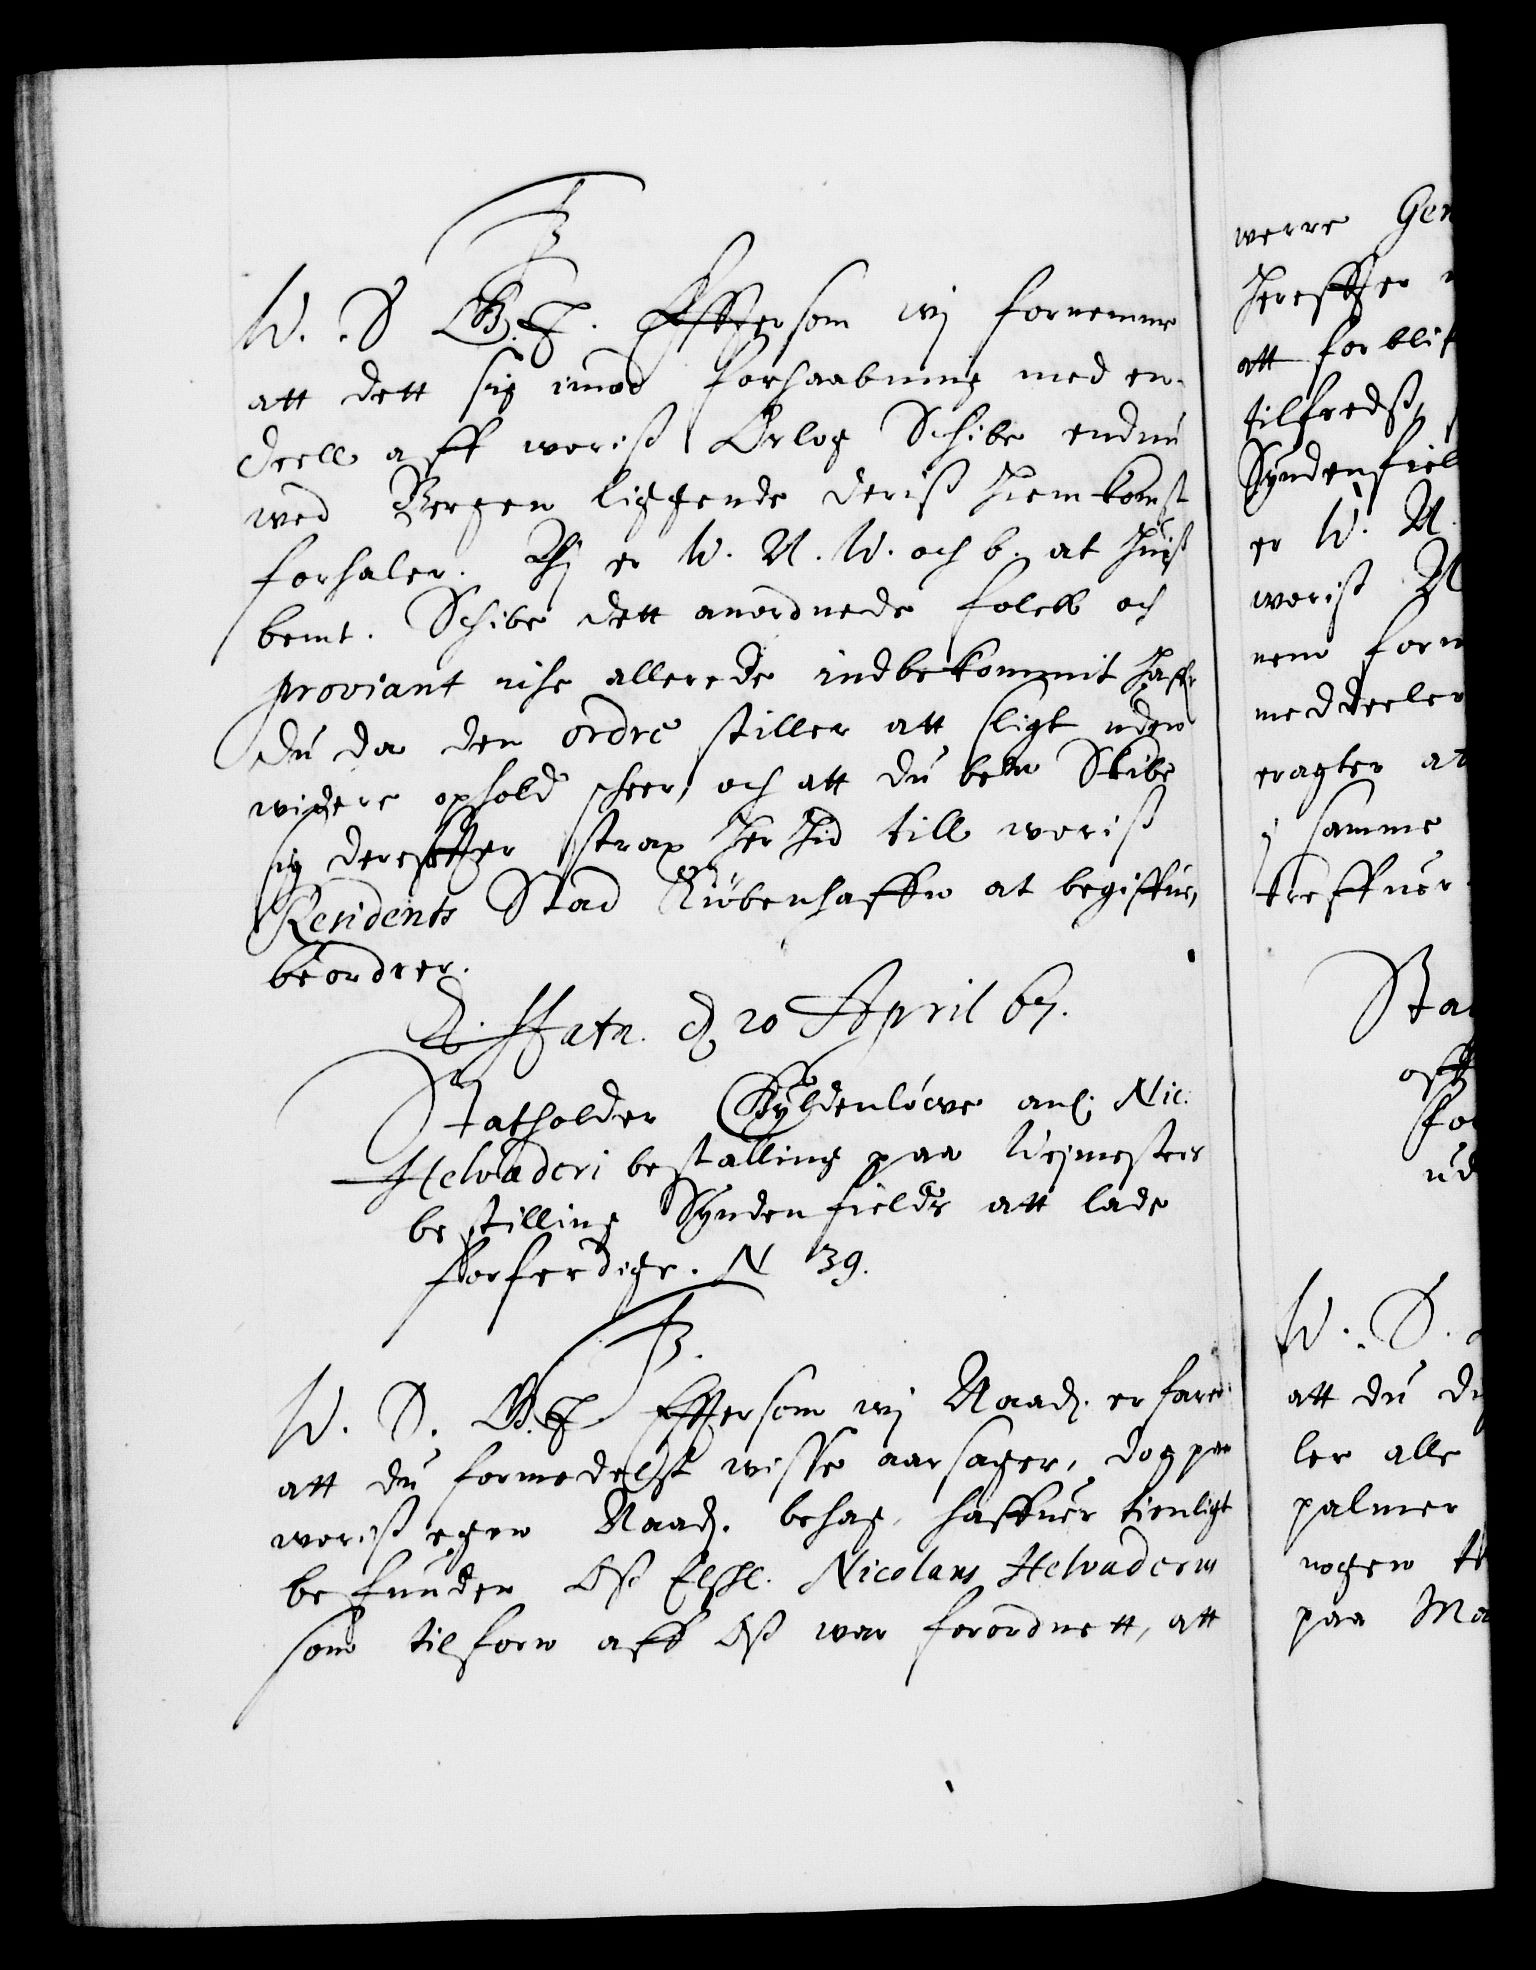 W. S G. T. Effter som wj fornemme
att dett sig imod forhaabning med en
deell aff woriß Orlog Schibe endnu
wed Bergen liggende deriß hiemkomst
forhaler. Thj er W. N. W. och b. at huiß
bemt. Schibe dett anordnede folck och
proviant iche allerede indbekommit haffr
du da den ordre stiller att sligt uden
widere ophold scheer, och att du bem Skibe
sig dereffter strax her hid till woriß
Residents Stad Kiøbenhaffn at begiffue,
beordrer.
Hafn. d 20 April 67.
Statholder Gyldenløwe anl. Nic.
Helvaderi bestalling paa Wejmesters
bestilling Syndenfields att lade
forferdige. N 39.
W. S. G. T Effter som wj Naad. erfarer
att du formedelst wisse aarsager, dog paa
woriß egen Naad. behag, haffuer tienligt
befunden Oß Elschl. Nicolaus Helvaderus
som tilforn aff Oß war forordnett, att
werre Gen
hereffter
att forblif
tilfredß,
Syndenfiel
er W. N.
woriß N
nem form
meddeeler
eragter at
j samme
treffuer
Sta
off
for
ud
W. S.
att du d
ler alle
palmer
nogen
paa Ma